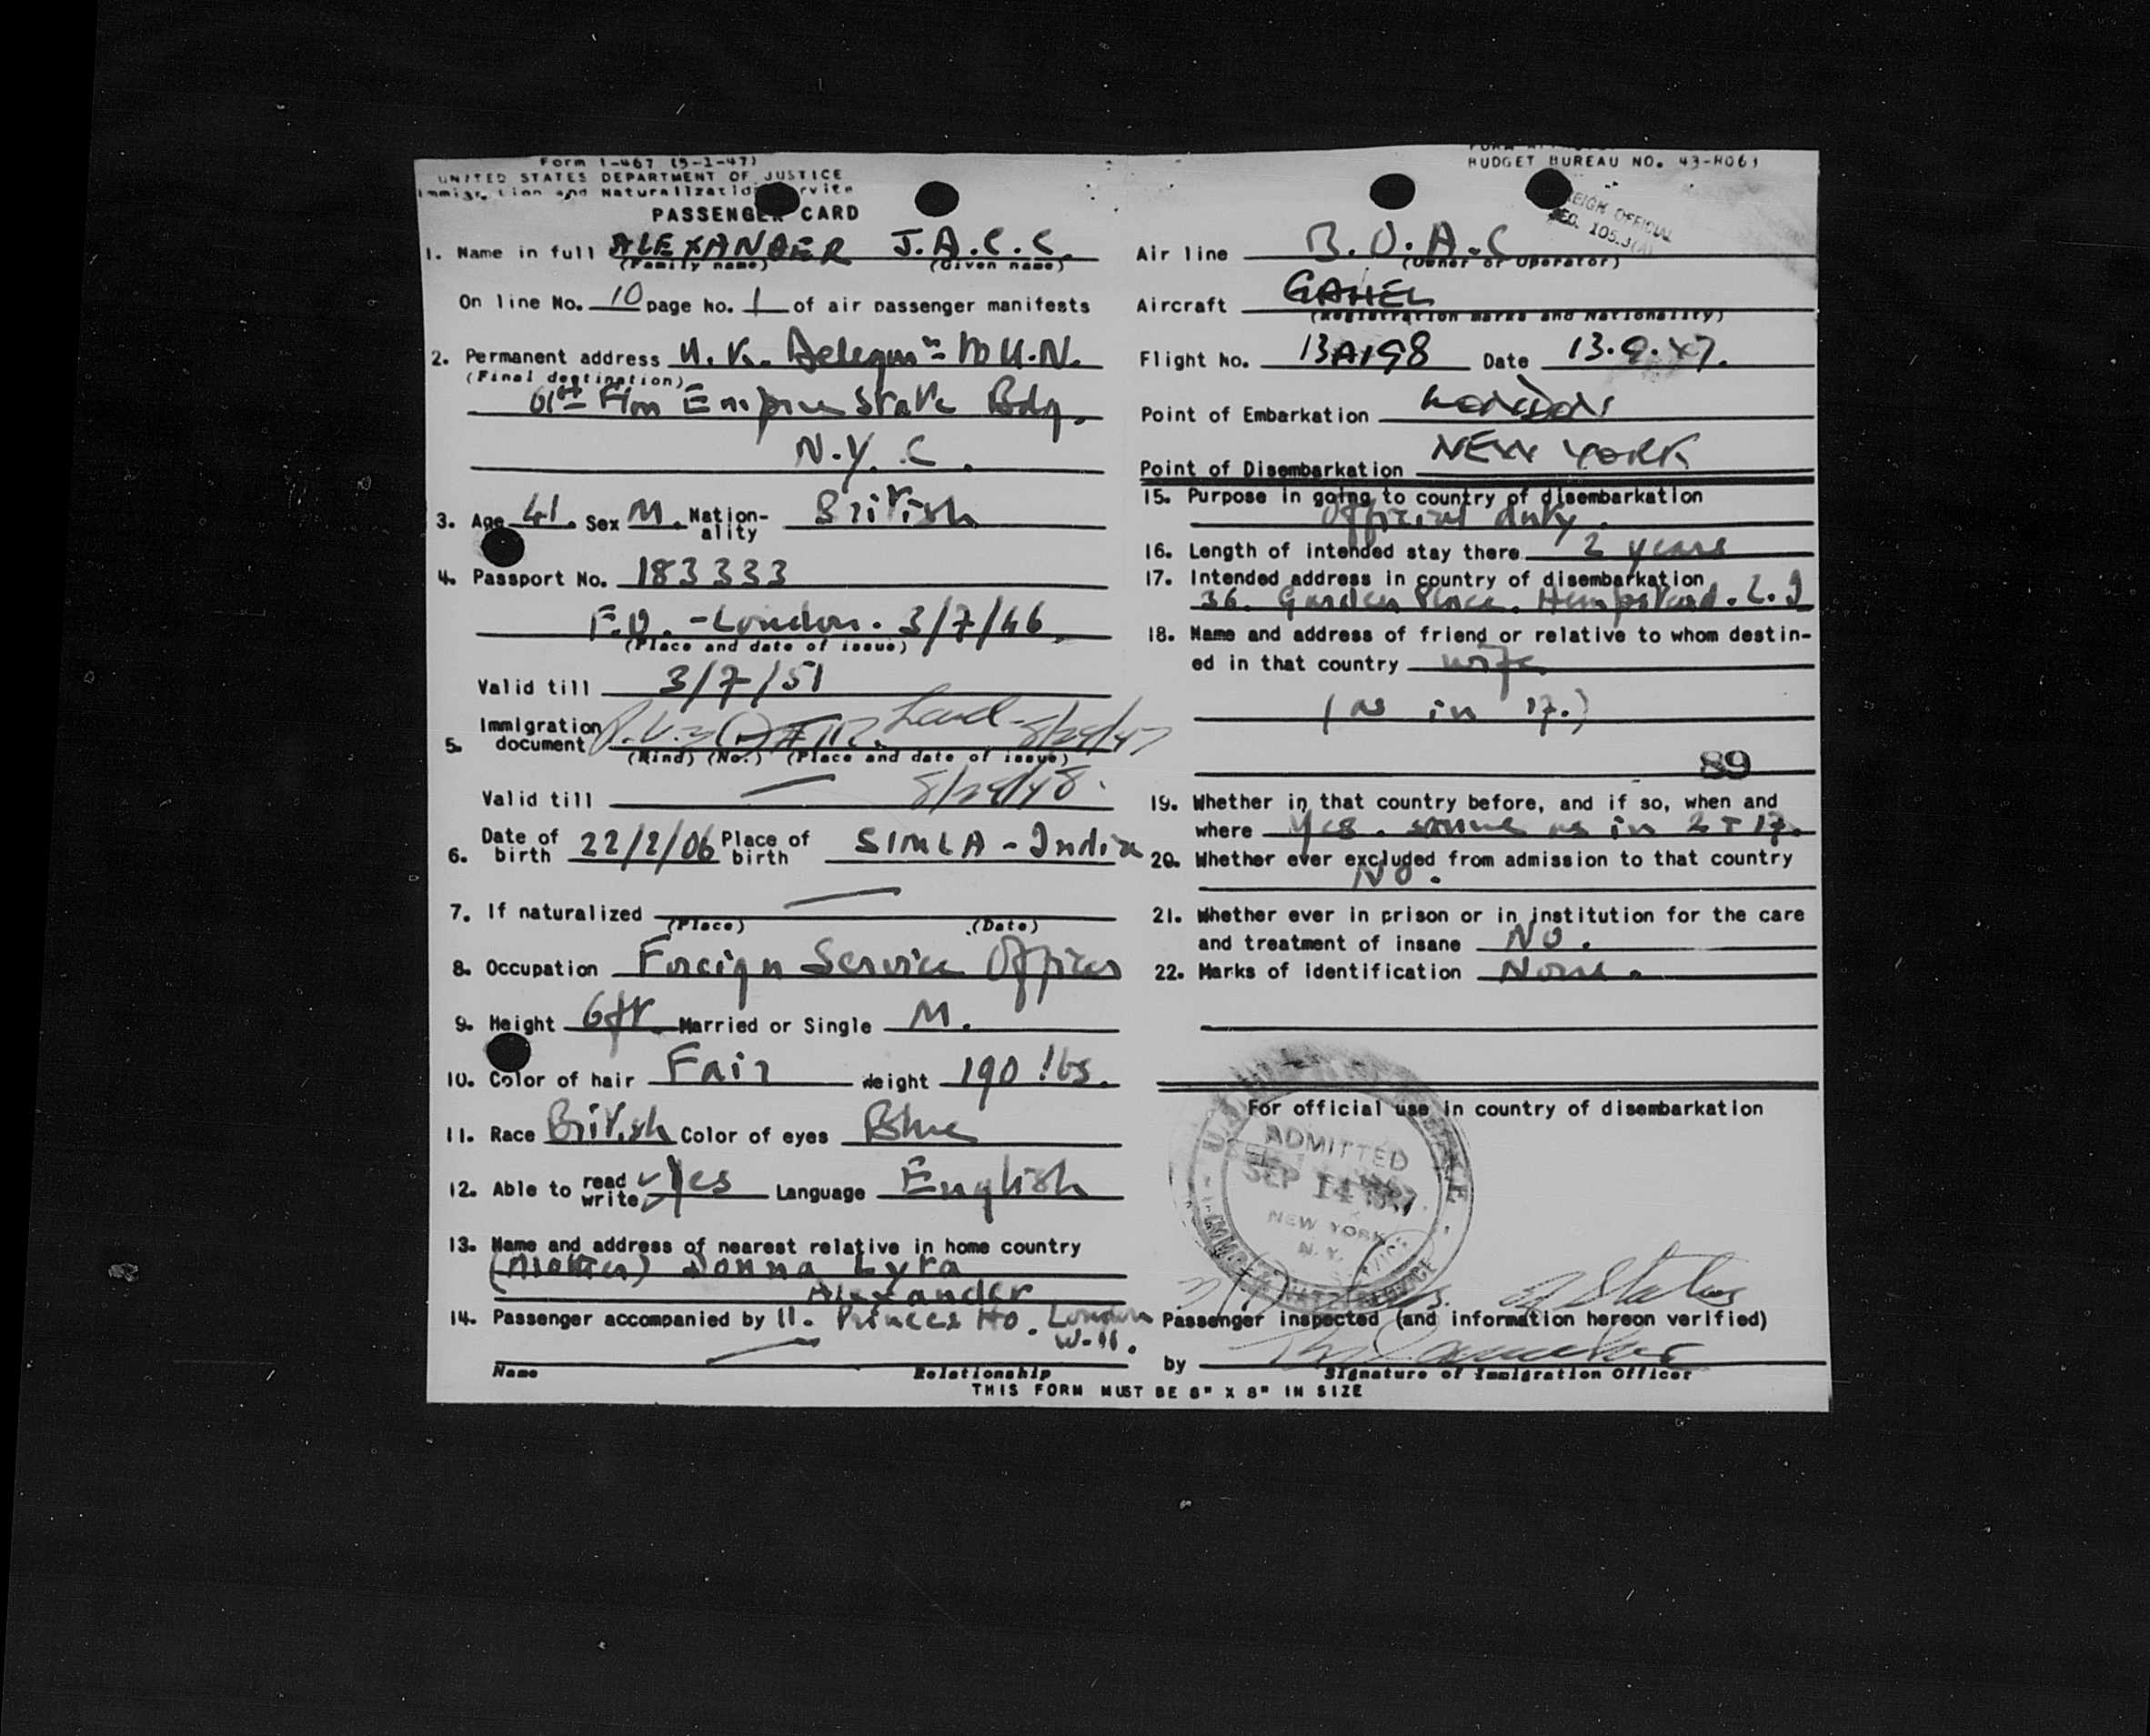 Form I-467 (5-1-47)
UNITED STATES DEPARTMENT OF JUSTICE
Immigration and Naturalization Service
PASSENGER CARD
BUDGET BUREAU NO. 43-R061
REIGN OFFICIAL
1. Name in full ALEXANDER J.A.C.C.
(Family name) (Given name)
On line No. 10 page No. 1 of air passenger manifests
2. Permanent address U.K. Delegn to U.N.
(Final destination)
61st Flor Empire State Bdg.
N.Y.C.
3. Age 41. Sex M. Nation-ality British
4. Passport No. 183333
F.O. - London. 3/7/46
(Place and date of issue)
Valid till 3/7/51
5. Immigration document 8/29/47
(Kind) (No.) (Place and date of issue)
Valid till — 8/29/48.
6. Date of birth 22/2/06 Place of birth SIMLA - India
7. If naturalized —
(Place) (Date)
8. Occupation Foreign Service Officer
9. Height 6ft. Married or Single M.
10. Color of hair Fair Weight 190 lbs.
11. Race British Color of eyes Blue
12. Able to read write Yes Language English
13. Name and address of nearest relative in home country
(Mother) Donna Lyra
Alexander
14. Passenger accompanied by 11. Princes Ho. London
W-11.
—
Name Relationship
THIS FORM MUST BE 8" X 8" IN SIZE
Air line B.O.A.C
(Owner or Operator)
Aircraft GAHEL
(Registration marks and Nationality)
Flight No. BA198 Date 13.9.47.
Point of Embarkation London
Point of Disembarkation NEW YORK
15. Purpose in going to country of disembarkation
Official duty.
16. Length of intended stay there 2 years
17. Intended address in country of disembarkation
36. Garden Place. Hempstead. L.I
18. Name and address of friend or relative to whom destin-
ed in that country wife
(as in 17.)
89
19. Whether in that country before, and if so, when and
where Yes. same as in 2 + 17.
20. Whether ever excluded from admission to that country
No.
21. Whether ever in prison or in institution for the care
and treatment of insane No.
22. Marks of identification None.
For official use in country of disembarkation
ADMITTED
SEP 14 1947
NEW YORK
N.Y.
Passenger inspected (and information hereon verified)
by
Signature of Immigration Officer